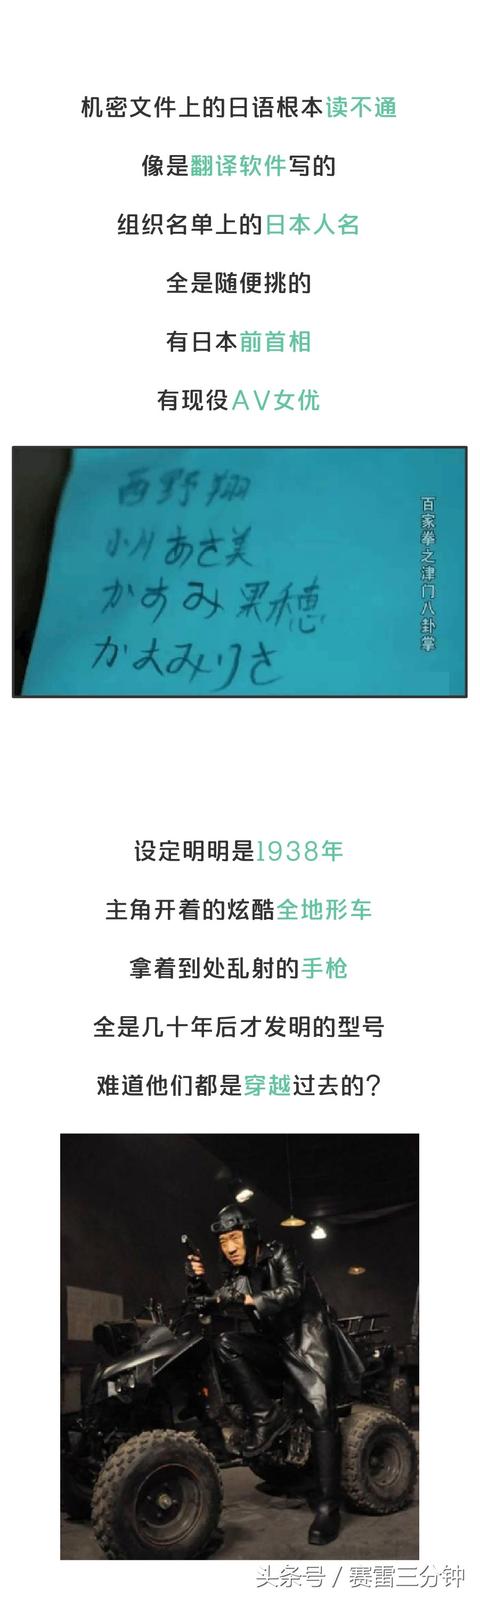 机密文件上的日语根本读不通
像是翻译软件写的
组织名单上的日本人名
全是随便挑的
有日本前首相
有现役AV女优
西野翔
小川あさ美
かすみ果穂
かすみりさ
百家拳之津门八卦掌
设定明明是1938年
主角开着的炫酷全地形车
拿着到处乱射的手枪
全是几十年后才发明的型号
难道他们都是穿越过去的？
头条号 / 赛雷三分钟